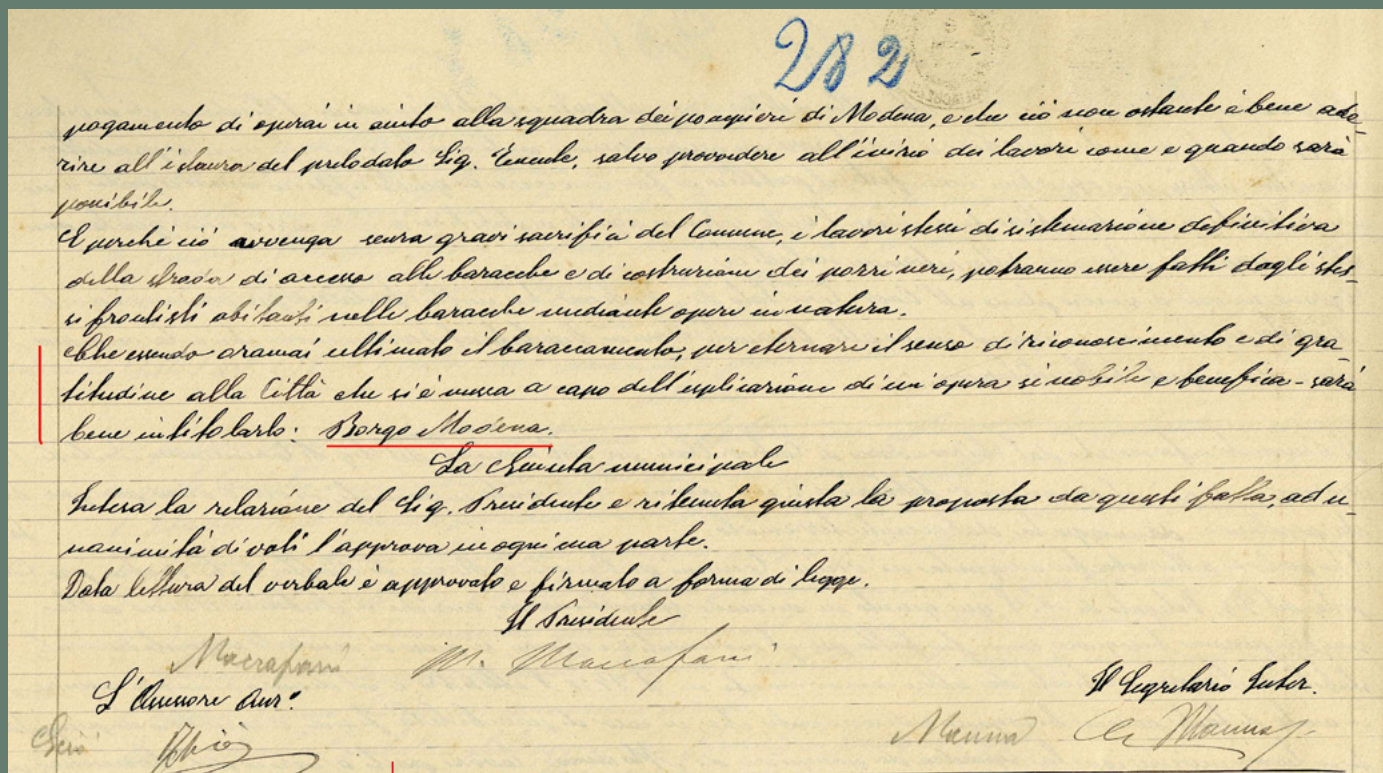 282
pagamento di operai in aiuto alla squadra dei pompieri di Modena, e che ciò non ostante è bene ade-
rire all'istanza del prelodato Sig. Tenente, salvo provvedere all'inizio dei lavori come e quando sarà
possibile.
E perché ciò avvenga senza gravi sacrifici del Comune, i lavori stessi di sistemazione definitiva
della strada di accesso alle baracche e di costruzione dei pozzi neri, potranno essere fatti dagli stes-
si frontisti abitanti nelle baracche mediante opere in natura.
Che essendo oramai ultimato il baraccamento, per eternare il senso di riconoscimento e di gra-
titudine alla Città che si è messa a capo dell'esplicazione di un'opera sì nobile e benefica - sarà
bene intitolarlo: Borgo Modena.
La Giunta municipale
Intesa la relazione del Sig. Presidente e ritenuta giusta la proposta da questi fatta, ad u-
nanimità di voti l'approva in ogni sua parte.
Data lettura del verbale è approvato e firmato a forma di legge.
Il Presidente
Marrafani M. Marrafani
L'Assessore Anz.º
Il Segretario Inter.
Manna Manna